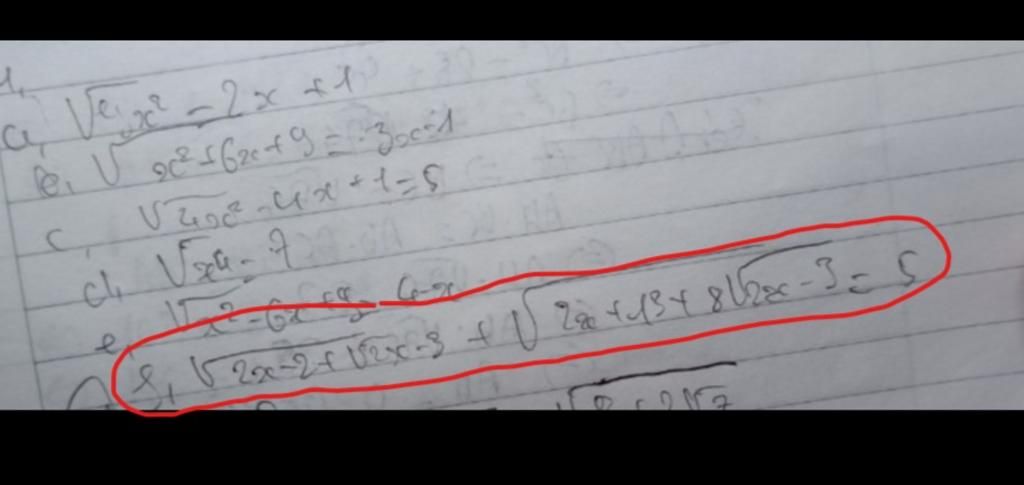 1,
a, √4x² = 2x + 1
b, √x² + 6x + 9 = 3x - 1
c, √4x² - 4x + 1 = 5
d, √x⁴ = 7
e, √x² - 6x + 9 = 4 - x
f, √2x - 2 + √2x - 3 + √2x + 13 + 8√2x - 3 = 5